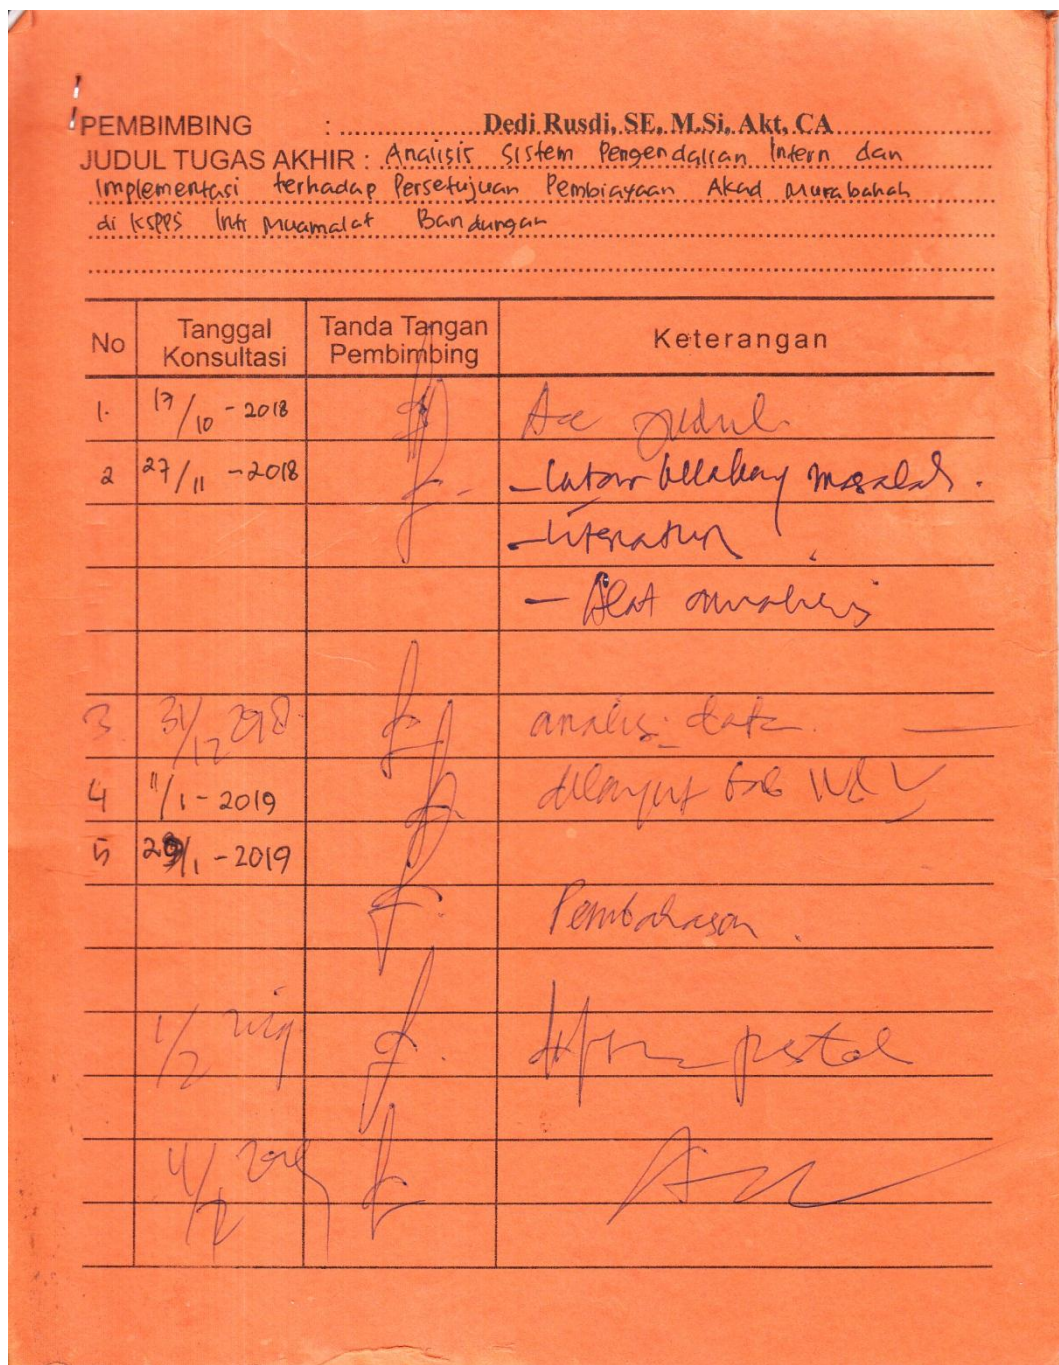 PEMBIMBING : Dedi Rusdi, SE, M.Si, Akt, CA
JUDUL TUGAS AKHIR : Analisis Sistem Pengendalian Intern dan
Implementasi terhadap Persetujuan Pembiayaan Akad Murabahah
di KSPPS Inti Muamalat Bandungan
No Tanggal Konsultasi Tanda Tangan Pembimbing Keterangan
1. 17/10 - 2018 Acc judul
2 27/11 - 2018 - Latar belakang masalah.
- Literatur
- Alat analisis
3 31/12 2018 analisis data
4 11/1 - 2019 dilanjut bab IV & V
5 29/1 - 2019
Pembahasan
1/2 2019
4/2 2019 Acc